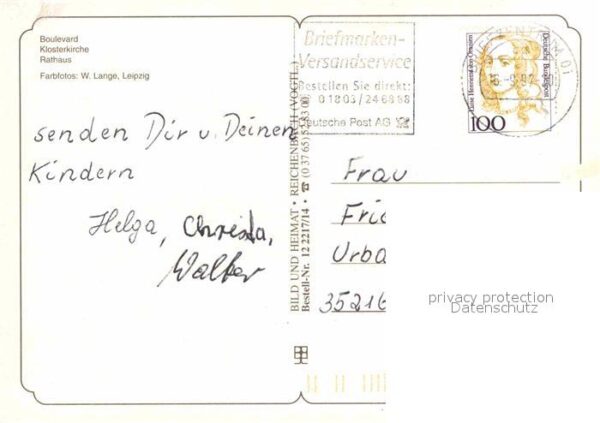 Boulevard
Klosterkirche
Rathaus
Farbfotos: W. Lange, Leipzig
senden Dir u. Deinen
Kindern
Helga, Christa,
Walter
BILD UND HEIMAT • REICHENBACH (VOGTL.)
Bestell-Nr. 12 2217/14 • ☎ (0 37 65)
Briefmarken-
Versandservice
Bestellen Sie direkt:
01803/246868
Deutsche Post AG
Deutsche Bundespost
100
Frau
Frie
Urba
35216
privacy protection
Datenschutz